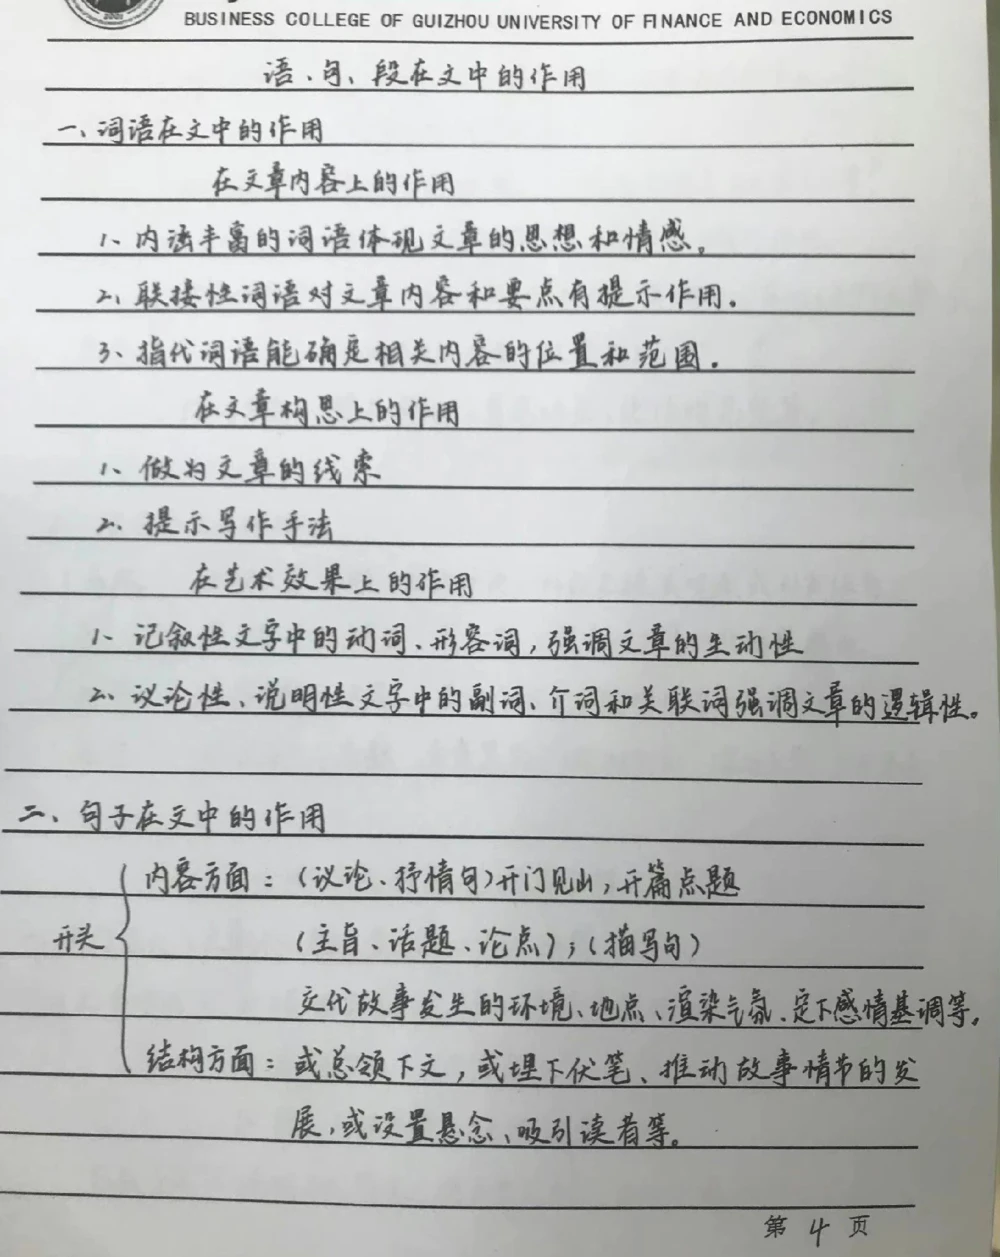 BUSINESS COLLEGE OF GUIZHOU UNIVERSITY OF FINANCE AND ECONOMICS
语、句、段在文中的作用
一、词语在文中的作用
在文章内容上的作用
1、内涵丰富的词语体现文章的思想和情感。
2、联接性词语对文章内容和要点有提示作用。
3、指代词语能确定相关内容的位置和范围。
在文章构思上的作用
1、做为文章的线索
2、提示写作手法
在艺术效果上的作用
1、记叙性文字中的动词、形容词，强调文章的生动性
2、议论性、说明性文字中的副词、介词和关联词强调文章的逻辑性。
二、句子在文中的作用
内容方面：（议论、抒情句）开门见山，开篇点题
开头
（主旨、话题、论点）；（描写句）
交代故事发生的环境、地点、渲染气氛、定下感情基调等。
结构方面：或总领下文，或埋下伏笔、推动故事情节的发
展，或设置悬念、吸引读者等。
第 4 页